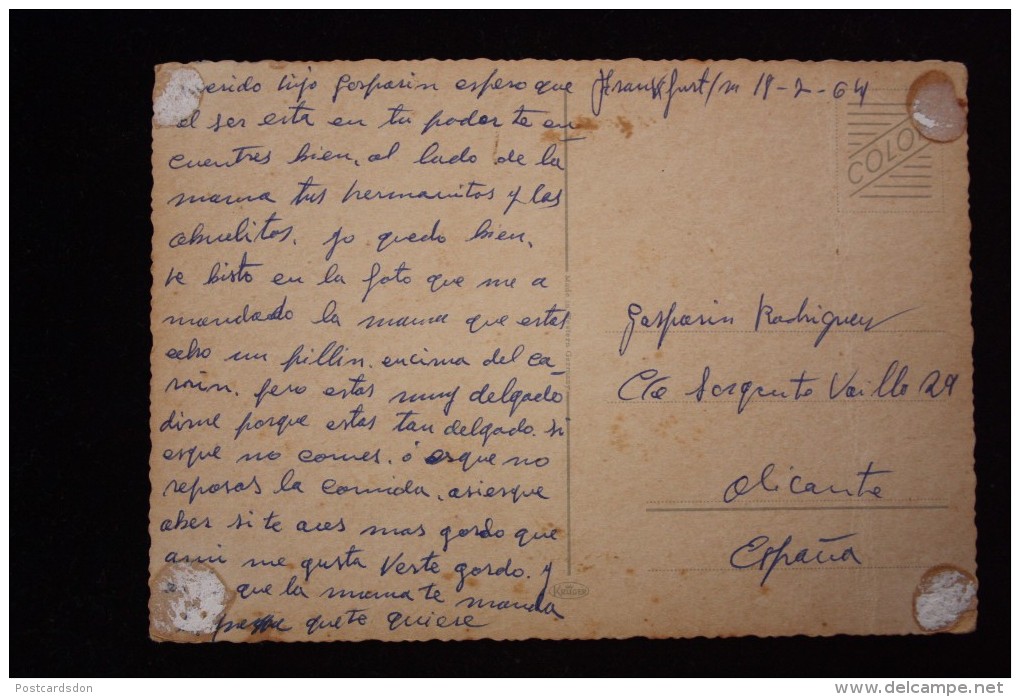 erido hijo Gasparin espero que
al ser esta en tu poder te en
cuentres bien, al lado de la
mama tus hermanitos y los
abuelitos. yo quedo bien,
te bisto en la foto que me a
mandado la mama que estas
echo un pillin. encima del ca-
rrin, pero estas muy delgado
dime porque estas tan delgado. si
esque no comes. ó esque no
reposas la comida. asiesque
aber si te aces mas gordo que
ami me gusta verte gordo. y
que la mama te manda
que te quiere
Frankfurt/m 18-2-64
COLOR
Gasparin Rodriguez
C/e Sargento Vaillo 29
Alicante
España
KRÜGER
Postcardsdon
www.delcampe.net